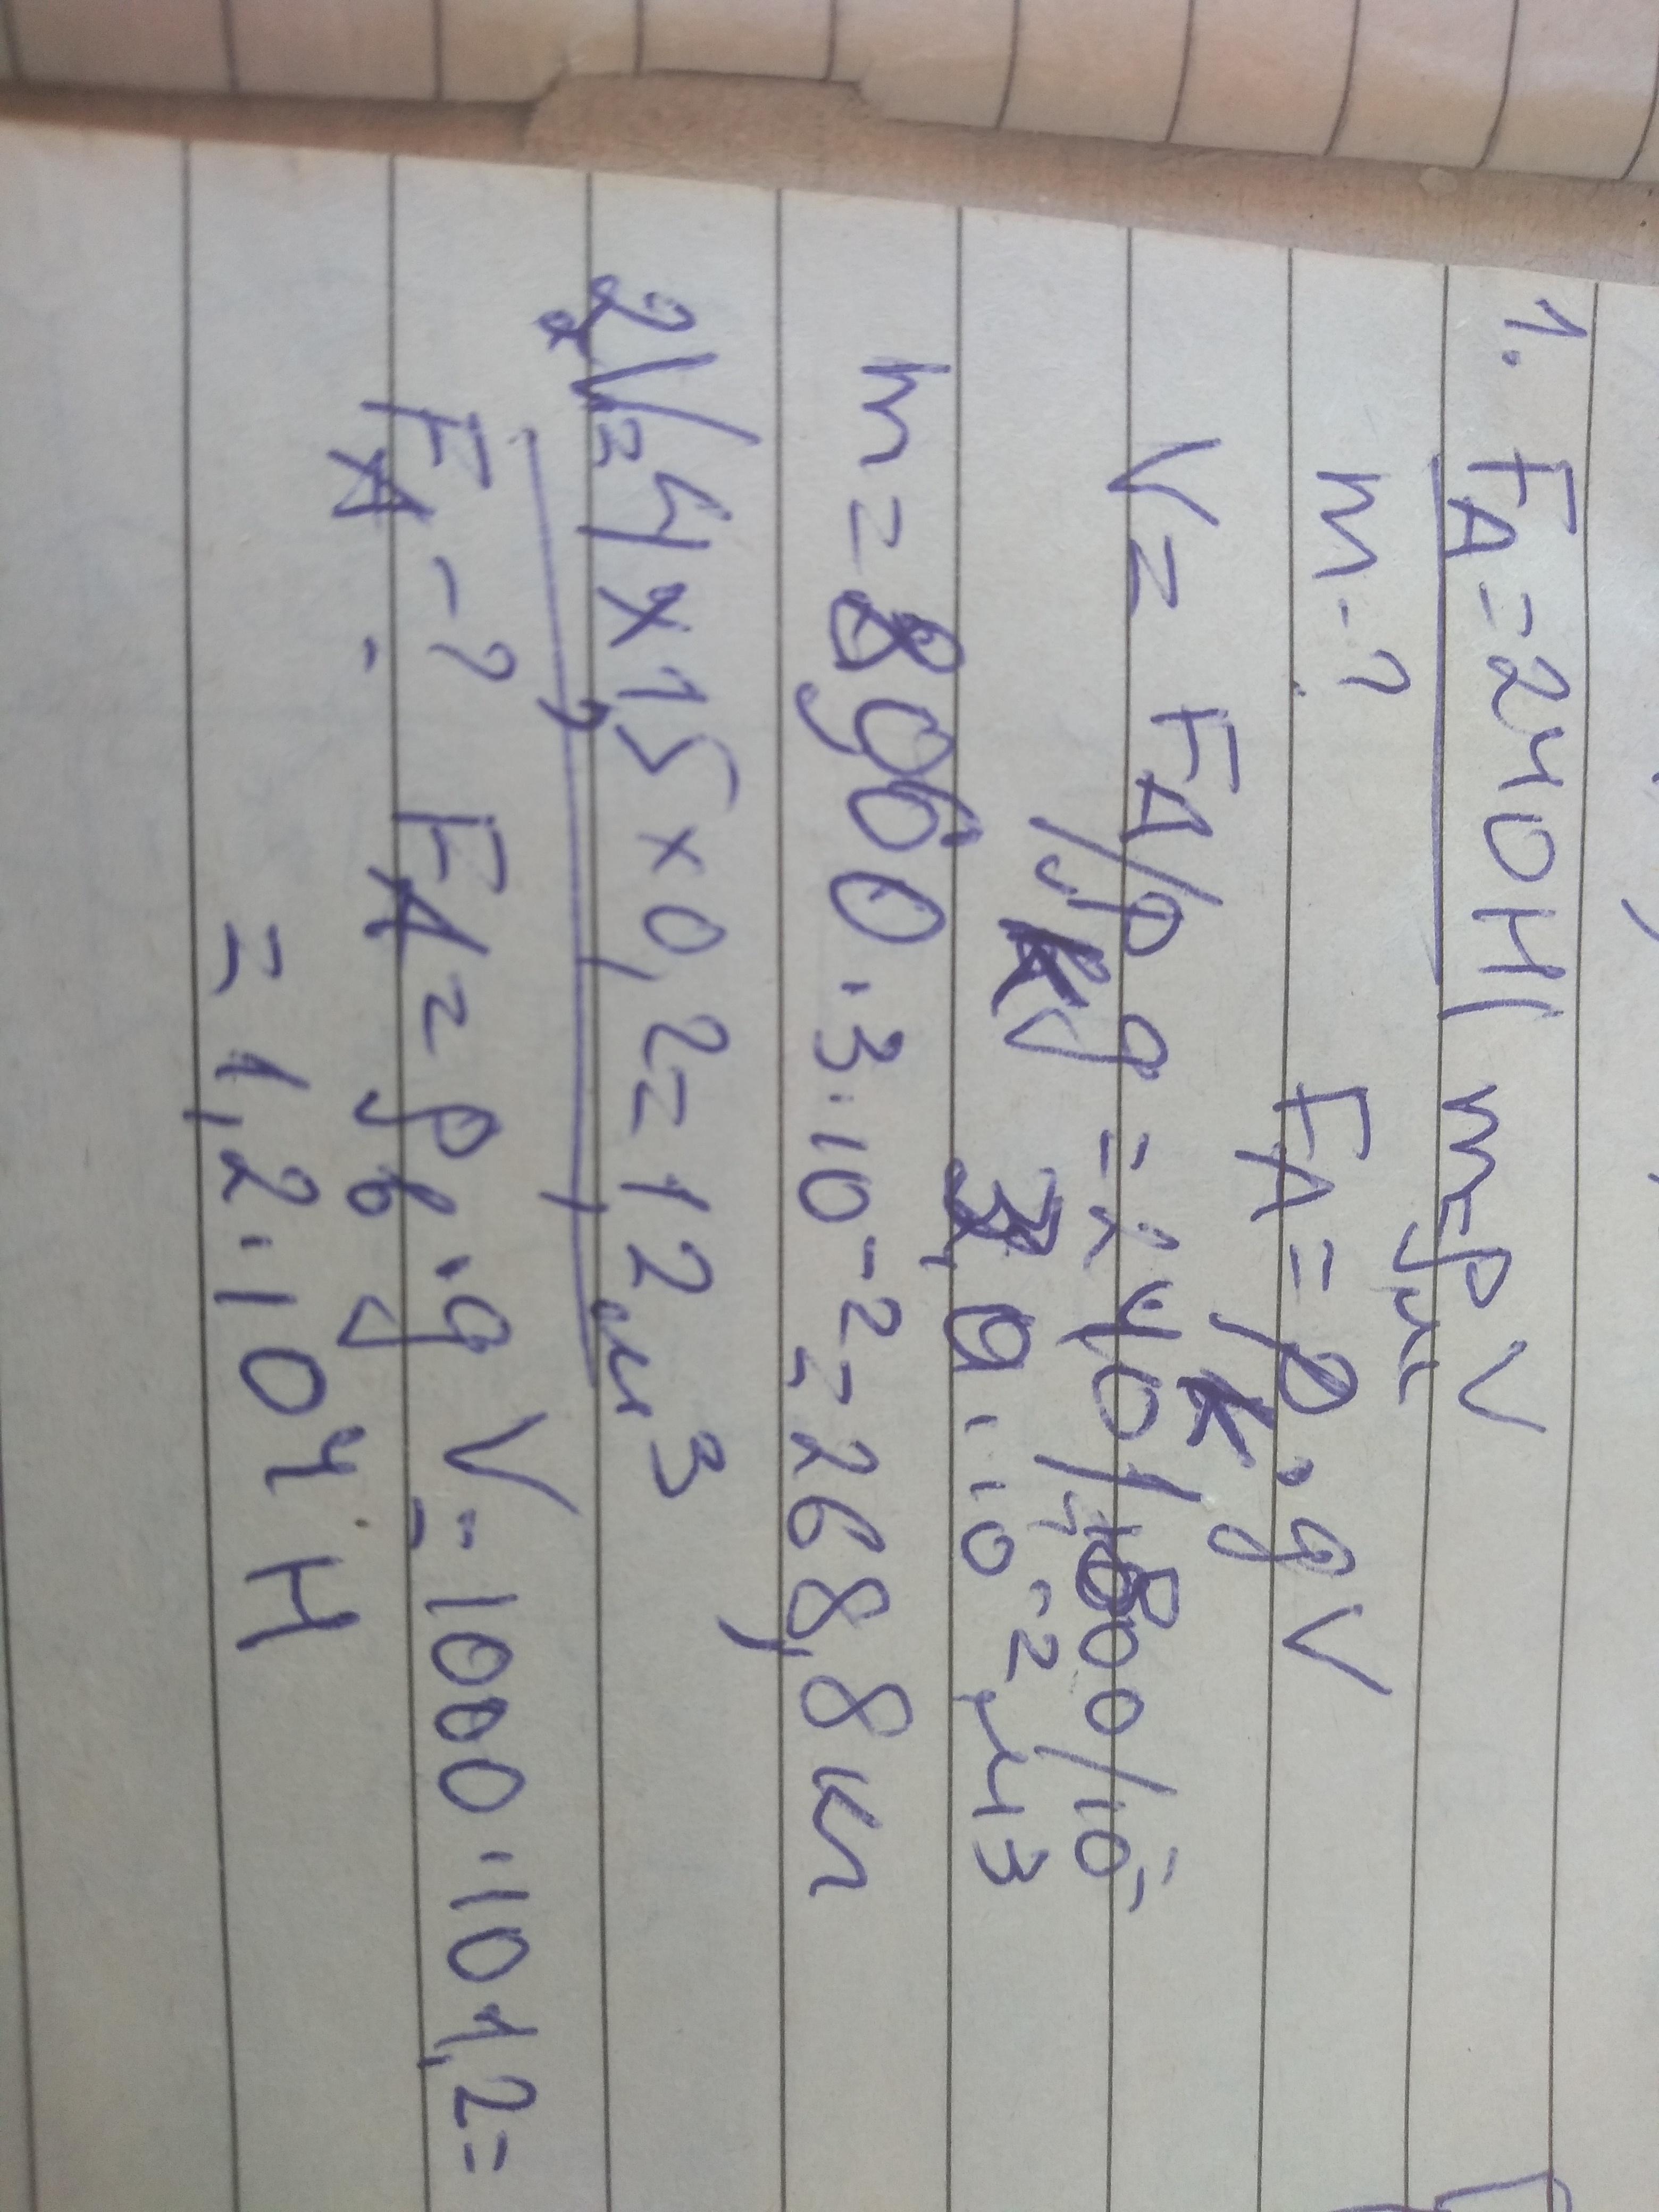 1. FA = 240 Н | m = ρм V
m - ?
FA = ρк · g V
V = FA / ρк g = 240 / 800 / 10 =
= 3,0 · 10⁻² м3
m = 8960 · 3 · 10⁻² = 268,8 кг
2. V = 4 x 1,5 x 0,2 = 1,2 м³
FA - ? FA = ρв · g V = 1000 · 10 1,2 =
= 1,2 · 10⁴ Н